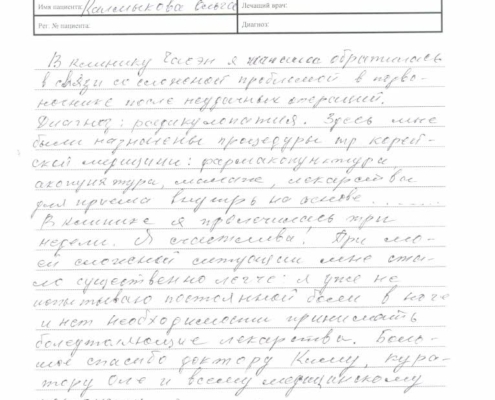 Имя пациента: Калмыкова Ольга
Лечащий врач:
Рег. № пациента:
Диагноз:
В клинику Часэн я обратилась
в связи со сложной проблемой в позво-
ночнике после неудачных операций.
Диагноз: радикулопатия. Здесь мне
были назначены процедуры тр. корей-
ской медицины: фармакопунктура,
акопунктура, массаж, лекарства
для приема внутрь на основе ......
В клинике я пролечилась три
недели. Я счастлива! При мо-
ей сложной ситуации мне ста-
ло существенно легче: я уже не
испытываю постоянной боли в ноге
и нет необходимости принимать
болеутоляющие лекарства. Боль-
шое спасибо доктору Киму, кура-
тору Оле и всему медицинскому